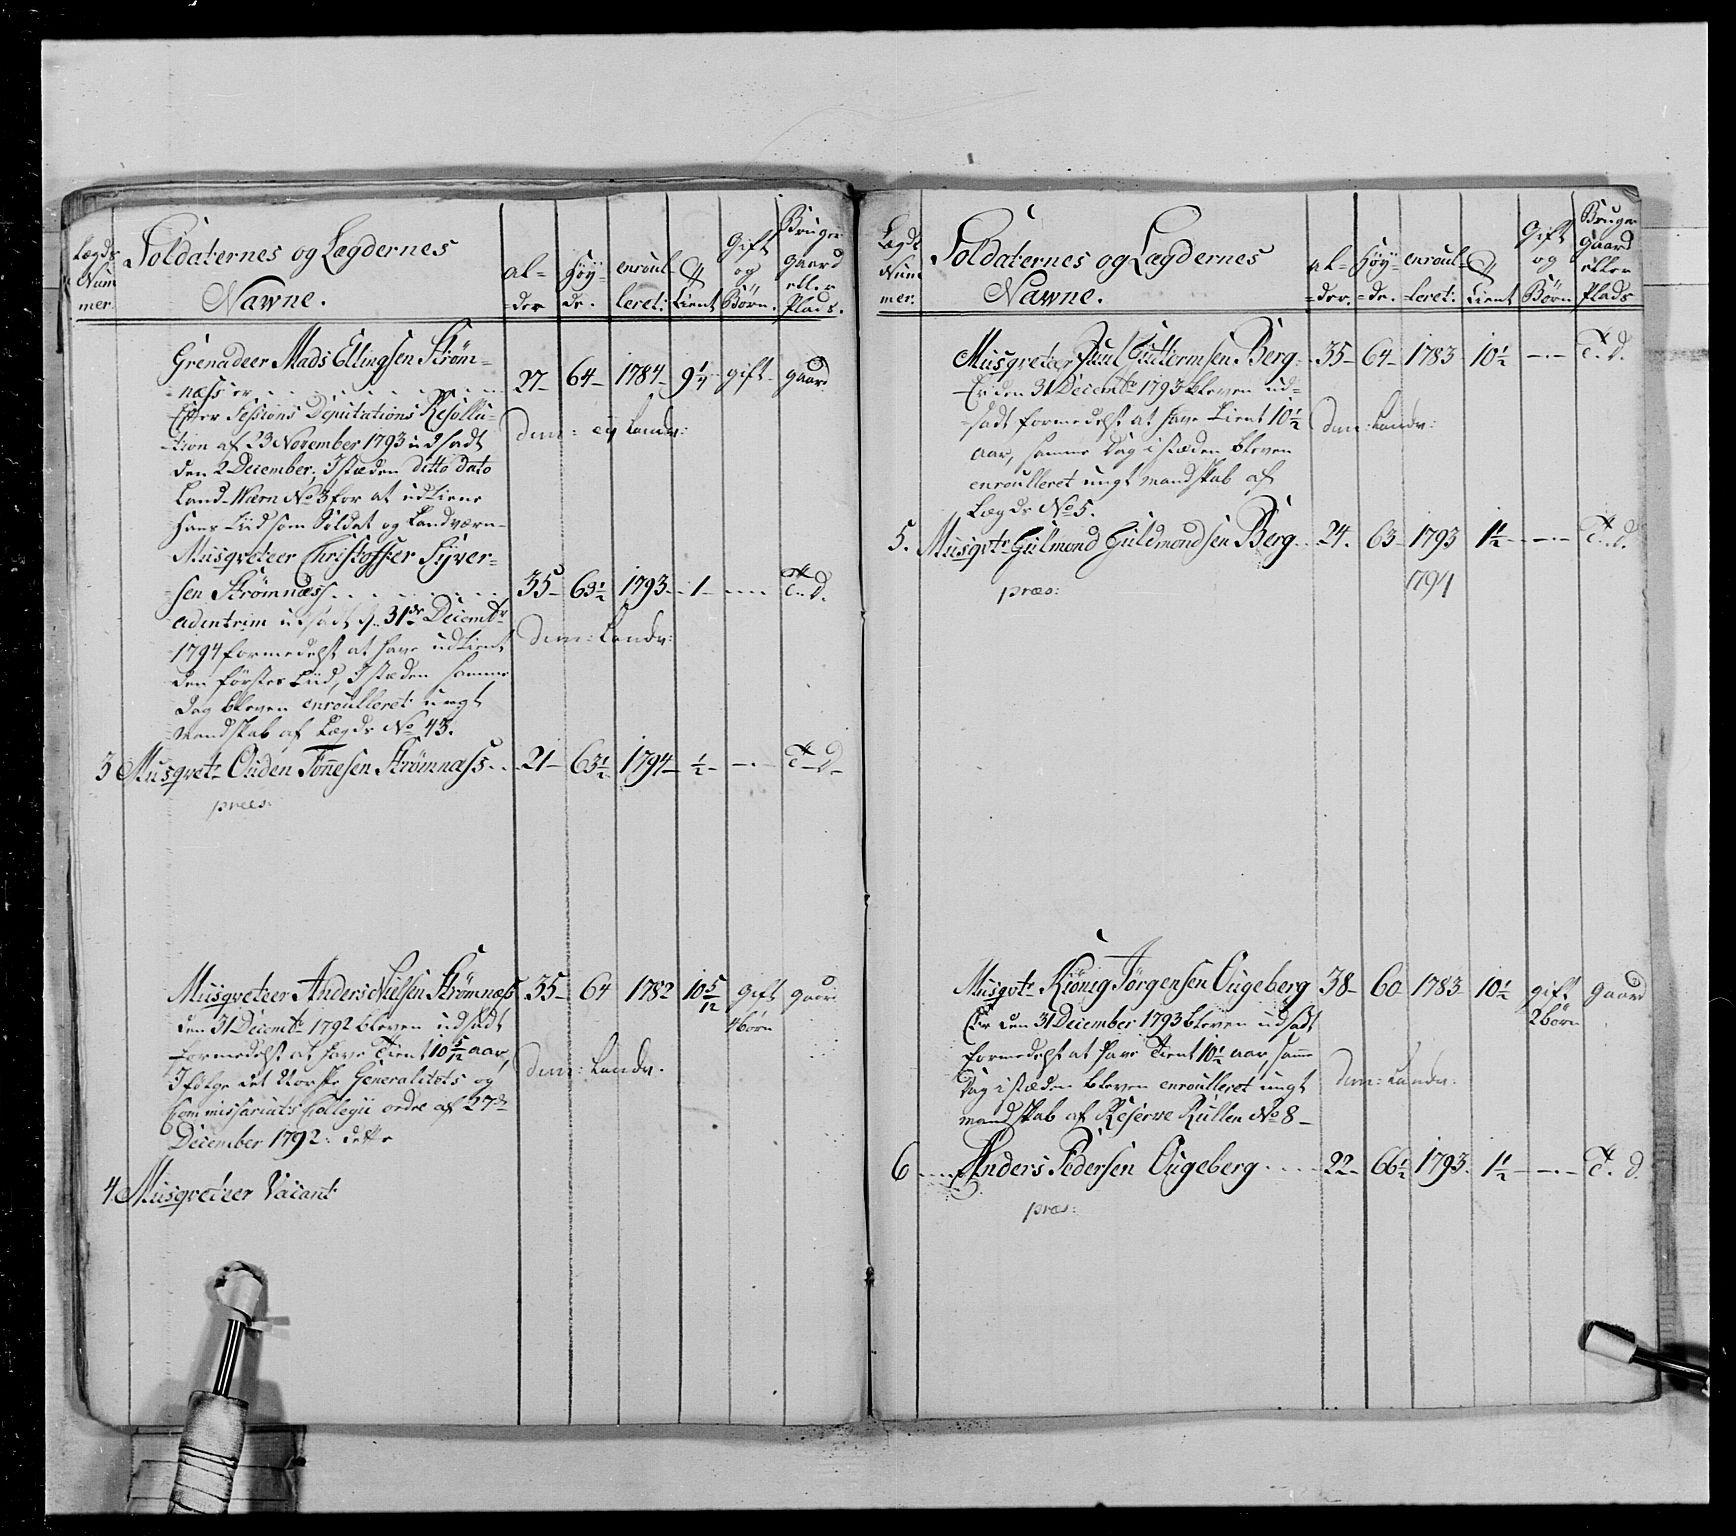 Lægds
Num
mer.
Soldaternes og Lægdernes
Nawne.
al-
-der
Høy-
de.
enroul-
leret:
Tient
Gift
og
Børn.
Bruger
gaard
eller
Plads.
Grenadeer Mads Ellingsen Strøm-
næss er 27- 64- 1784- 9¼ gift- gaard
Efter Sessions Deputations Resollu-
tion af 23 November 1793 udsadt
den 2 December, I stæden ditto dato
Land-Wærn No 3 for at udtiene
hans Tiid som Soldat og Landværn-
dim: ey Landv:
Musqveteer Christoffer Syver-
sen Strømnæss 35- 63½ 1793- 1- - - - T. d.
udsadt d. 31de Decembr
1794 formedelst at have udtient
den førster Tiid, I stæden samme
Dag bleven enroulleret ungt
mandskab af Lægds No 43.
dim: Landv:
3 Musqvetr Ouden Tønesen Strømnæss 21- 63½ 1794- ½- -.- T-d-
præs:
Musqveteer Anders Nielsen Strømnæss 35- 64 1782 10 5/12 gift gaard
4 børn
den 31 Decembr 1792 bleven udsadt
formedelst at have Tient 10 5/12 aar,
I følge det Norske Generalitets og
Commissariats Collegii ordre af 27de
December 1792:
dim: Landv.
4 Musqveteer Vacant
Lægds
Num
mer.
Soldaternes og Lægdernes
Nawne.
al-
-der.
Høy-
-de.
enroul-
-leret:
Tient
Gift
og
Børn
Bruger
gaard
eller
Plads
Musqveteer Paul Guttormsen Berg 35- 64- 1783 10½ -.- T. d.
Er den 31 Decembr 1793 bleven ud-
sadt formedelst at have Tient 10½
aar, samme Dag i stæden bleven
enroulleret ungt mandskab af
Lægds No 5.
dim: Landv:
5. Musqvtr Gulmond Gulmondsen Berg 24. 63- 1793 1½ -.- T. d.
præs: 1794
Musqvtr Kiønig Jørgensen Ougeberg 38- 60- 1783- 10½ gift gaard
2 børn
Er den 31 December 1793 bleven udsadt
formedelst at have Tient 10½ aar, samme
Dag i stæden bleven enroulleret ungt
mandskab af Reserve Rullen No 8-
dim: Landv:
6 Anders Pedersen Ougeberg 22- 66½ 1793 1½ -.- T. d
præs: